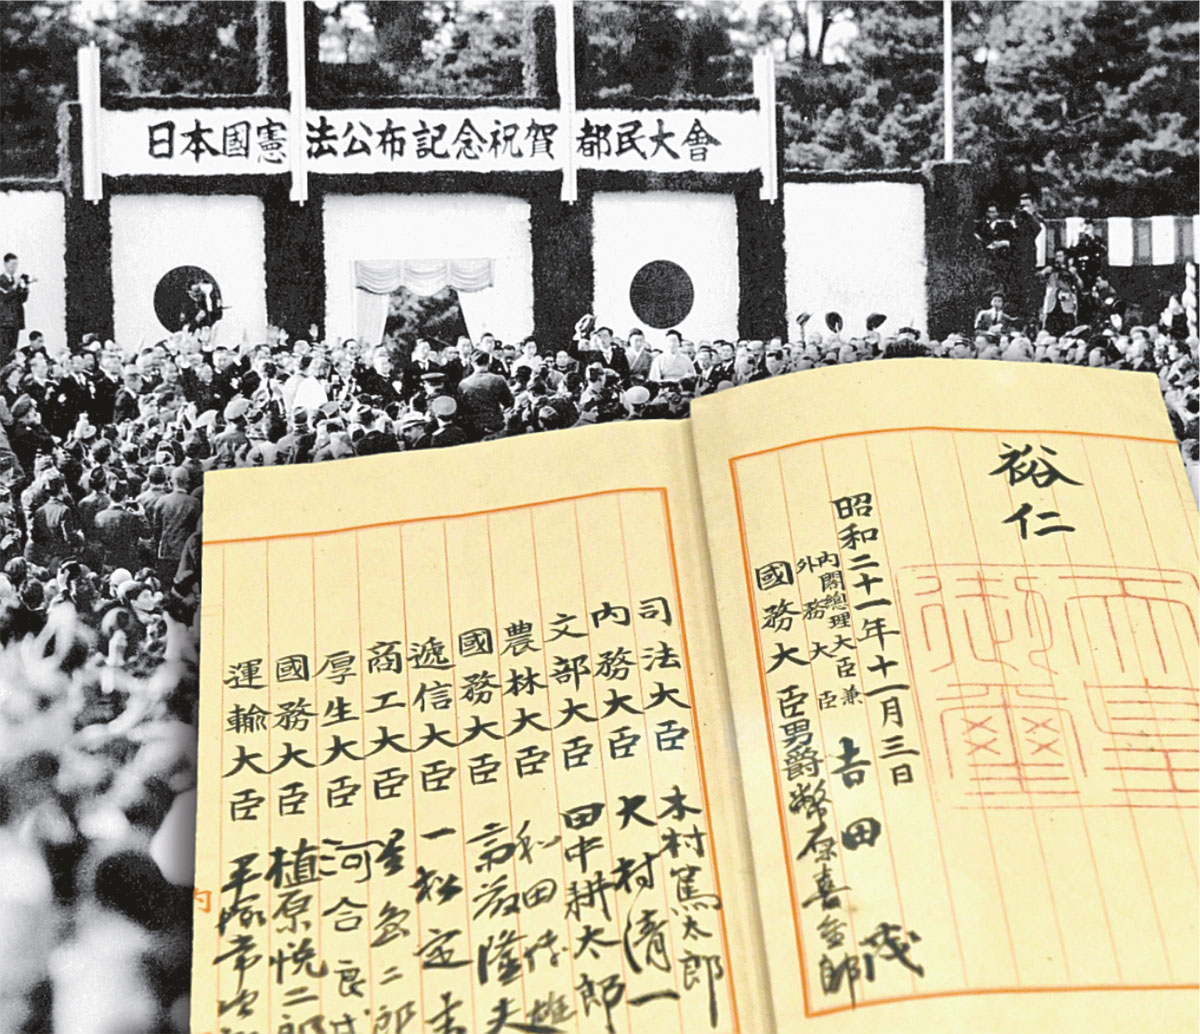 日本國憲法公布記念祝賀都民大會
裕仁
御璽
昭和二十一年十一月三日
内閣總理大臣兼
外務大臣
吉田茂
國務大臣男爵幣原喜重郎
司法大臣木村篤太郎
内務大臣大村清一
文部大臣田中耕太郎
農林大臣和田博雄
國務大臣斎藤隆夫
遞信大臣一松定吉
商工大臣星島二郎
厚生大臣河合良成
國務大臣植原悦二郎
運輸大臣平塚常次郎
内